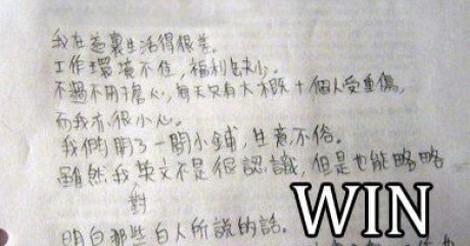 我在這裏生活得很差。
工作環境不佳，福利缺少。
不過不用擔心，每天只有大概十個人受重傷，
而我亦很小心。
我們開了一間小鋪，生意不俗。
雖然我英文不是很認識，但是也能略略
對
明白那些白人所說的話。
WIN